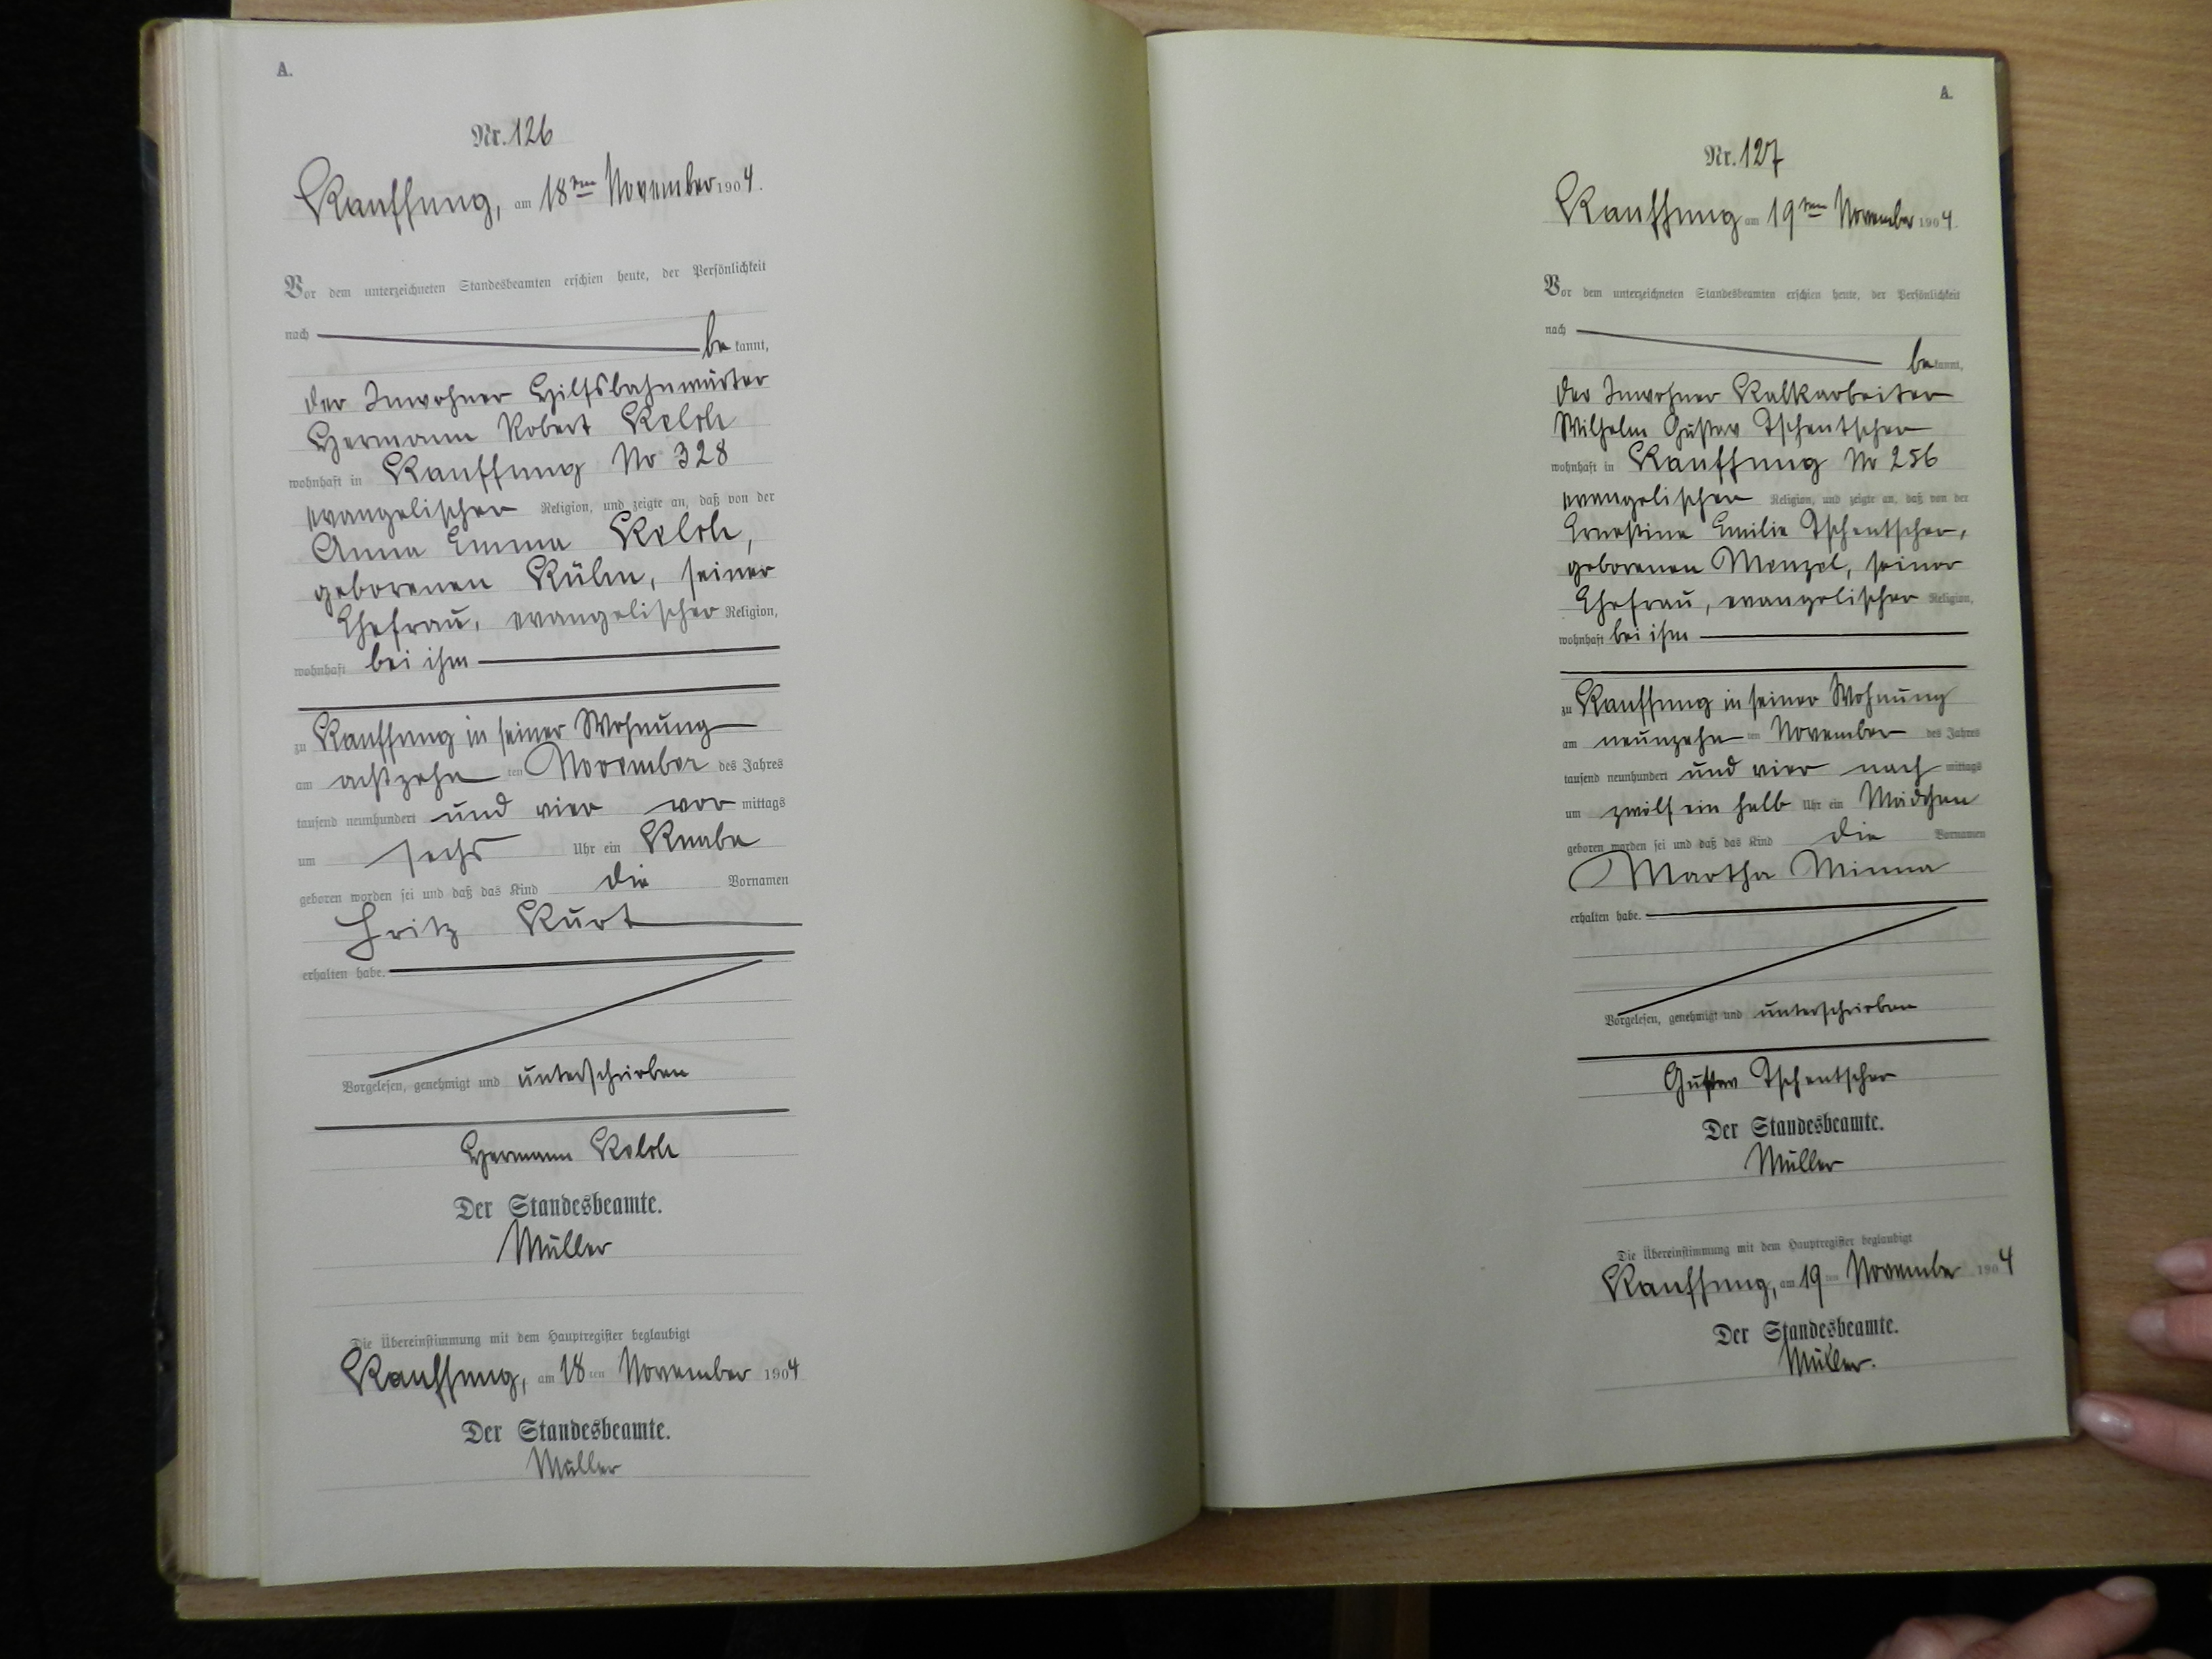 A.
Nr. 126
Kauffung, am 18ten November 1904.
Vor dem unterzeichneten Standesbeamten erschien heute, der Persönlichkeit
nach bekannt,
der Inwohner Hilfsbahnwärter
Hermann Robert
wohnhaft in Kauffung No 328
evangelischer Religion, und zeigte an, daß von der
Anna Emma
geborenen seiner
Ehefrau, evangelischer Religion,
wohnhaft bei ihm
zu Kauffung in seiner Wohnung
am achtzehnten November des Jahres
tausend neunhundert und vier vormittags
um sechs Uhr ein Knabe
geboren worden sei und daß das Kind die Vornamen
Fritz Kurt
erhalten habe.
Vorgelesen, genehmigt und unterschrieben
Hermann
Der Standesbeamte.
Müller
Die Übereinstimmung mit dem Hauptregister beglaubigt
Kauffung, am 18ten November 1904
Der Standesbeamte.
Müller
A.
Nr. 127
Kauffung am 19ten November 1904.
Vor dem unterzeichneten Standesbeamten erschien heute, der Persönlichkeit
nach bekannt,
der Inwohner Kalkarbeiter
Wilhelm Gustav Tschentscher
wohnhaft in Kauffung No 256
evangelischer Religion, und zeigte an, daß von der
Ernestine Emilie Tschentscher,
geborenen Menzel, seiner
Ehefrau, evangelischer Religion,
wohnhaft bei ihm
zu Kauffung in seiner Wohnung
am neunzehnten November des Jahres
tausend neunhundert und vier nachmittags
um zwölf ein halb Uhr ein Mädchen
geboren worden sei und daß das Kind die Vornamen
Martha Minna
erhalten habe.
Vorgelesen, genehmigt und unterschrieben
Gustav Tschentscher
Der Standesbeamte.
Müller
Die Übereinstimmung mit dem Hauptregister beglaubigt
Kauffung, am 19ten November 1904
Der Standesbeamte.
Müller.